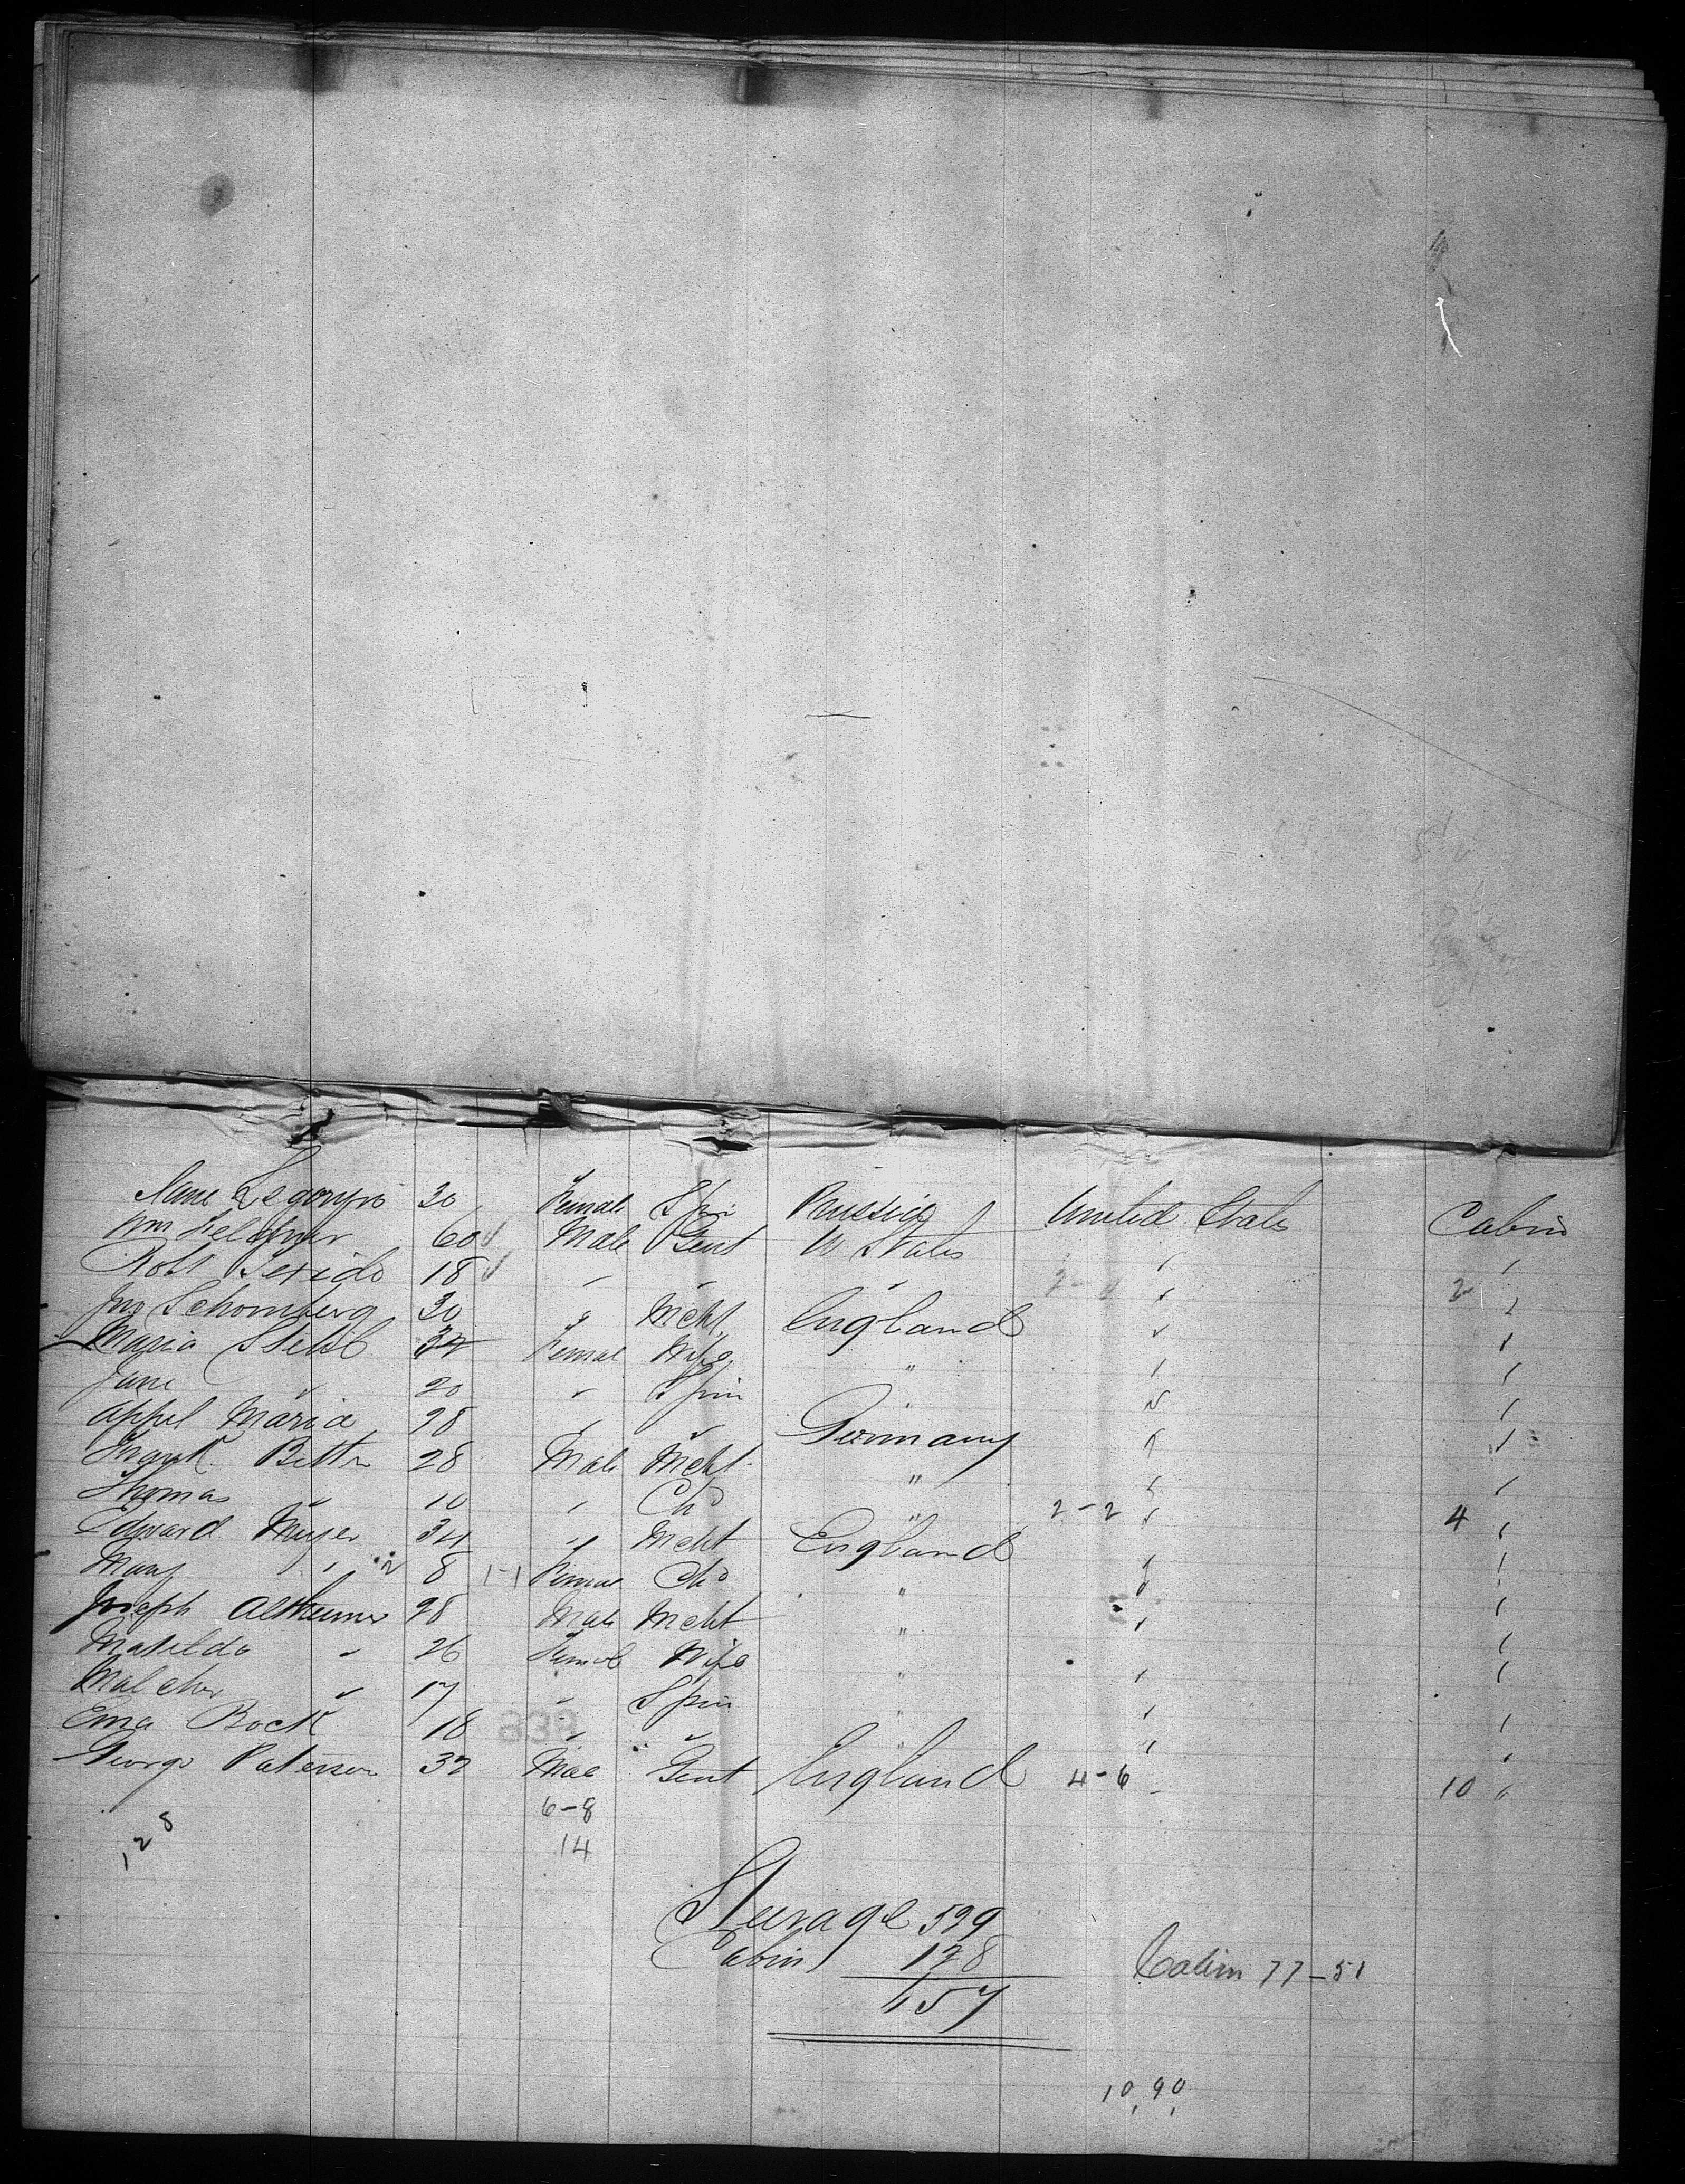 30 Female Spin Russia United States Cabin
Wm 60 Male Gent U States "
Robt 18 " " " " 2 "
Jno Schomberg 30 " Mcht England " "
Maria 34 Female Wife " " "
Jane " 20 " Spin " " "
Appel Maria 28 " " Germany " "
Frank Bitter 28 Male Mcht " " "
Thomas " 10 " Chd " 2-2 " 4 "
Edward Meyer 34 " Mcht England " "
Mary " 8 1-1 Female Chd " " "
Joseph Altheimer 28 Male Mcht " " "
Matilda " 26 Female Wife " " "
" 17 " Spin " " "
Ema Bock 18 " " " " "
George Paterson 32 Male Gent England 4-6 " 10 "
6-8
128
14
Steerage 529
Cabin 128
657
Cabin 77-51
10,90